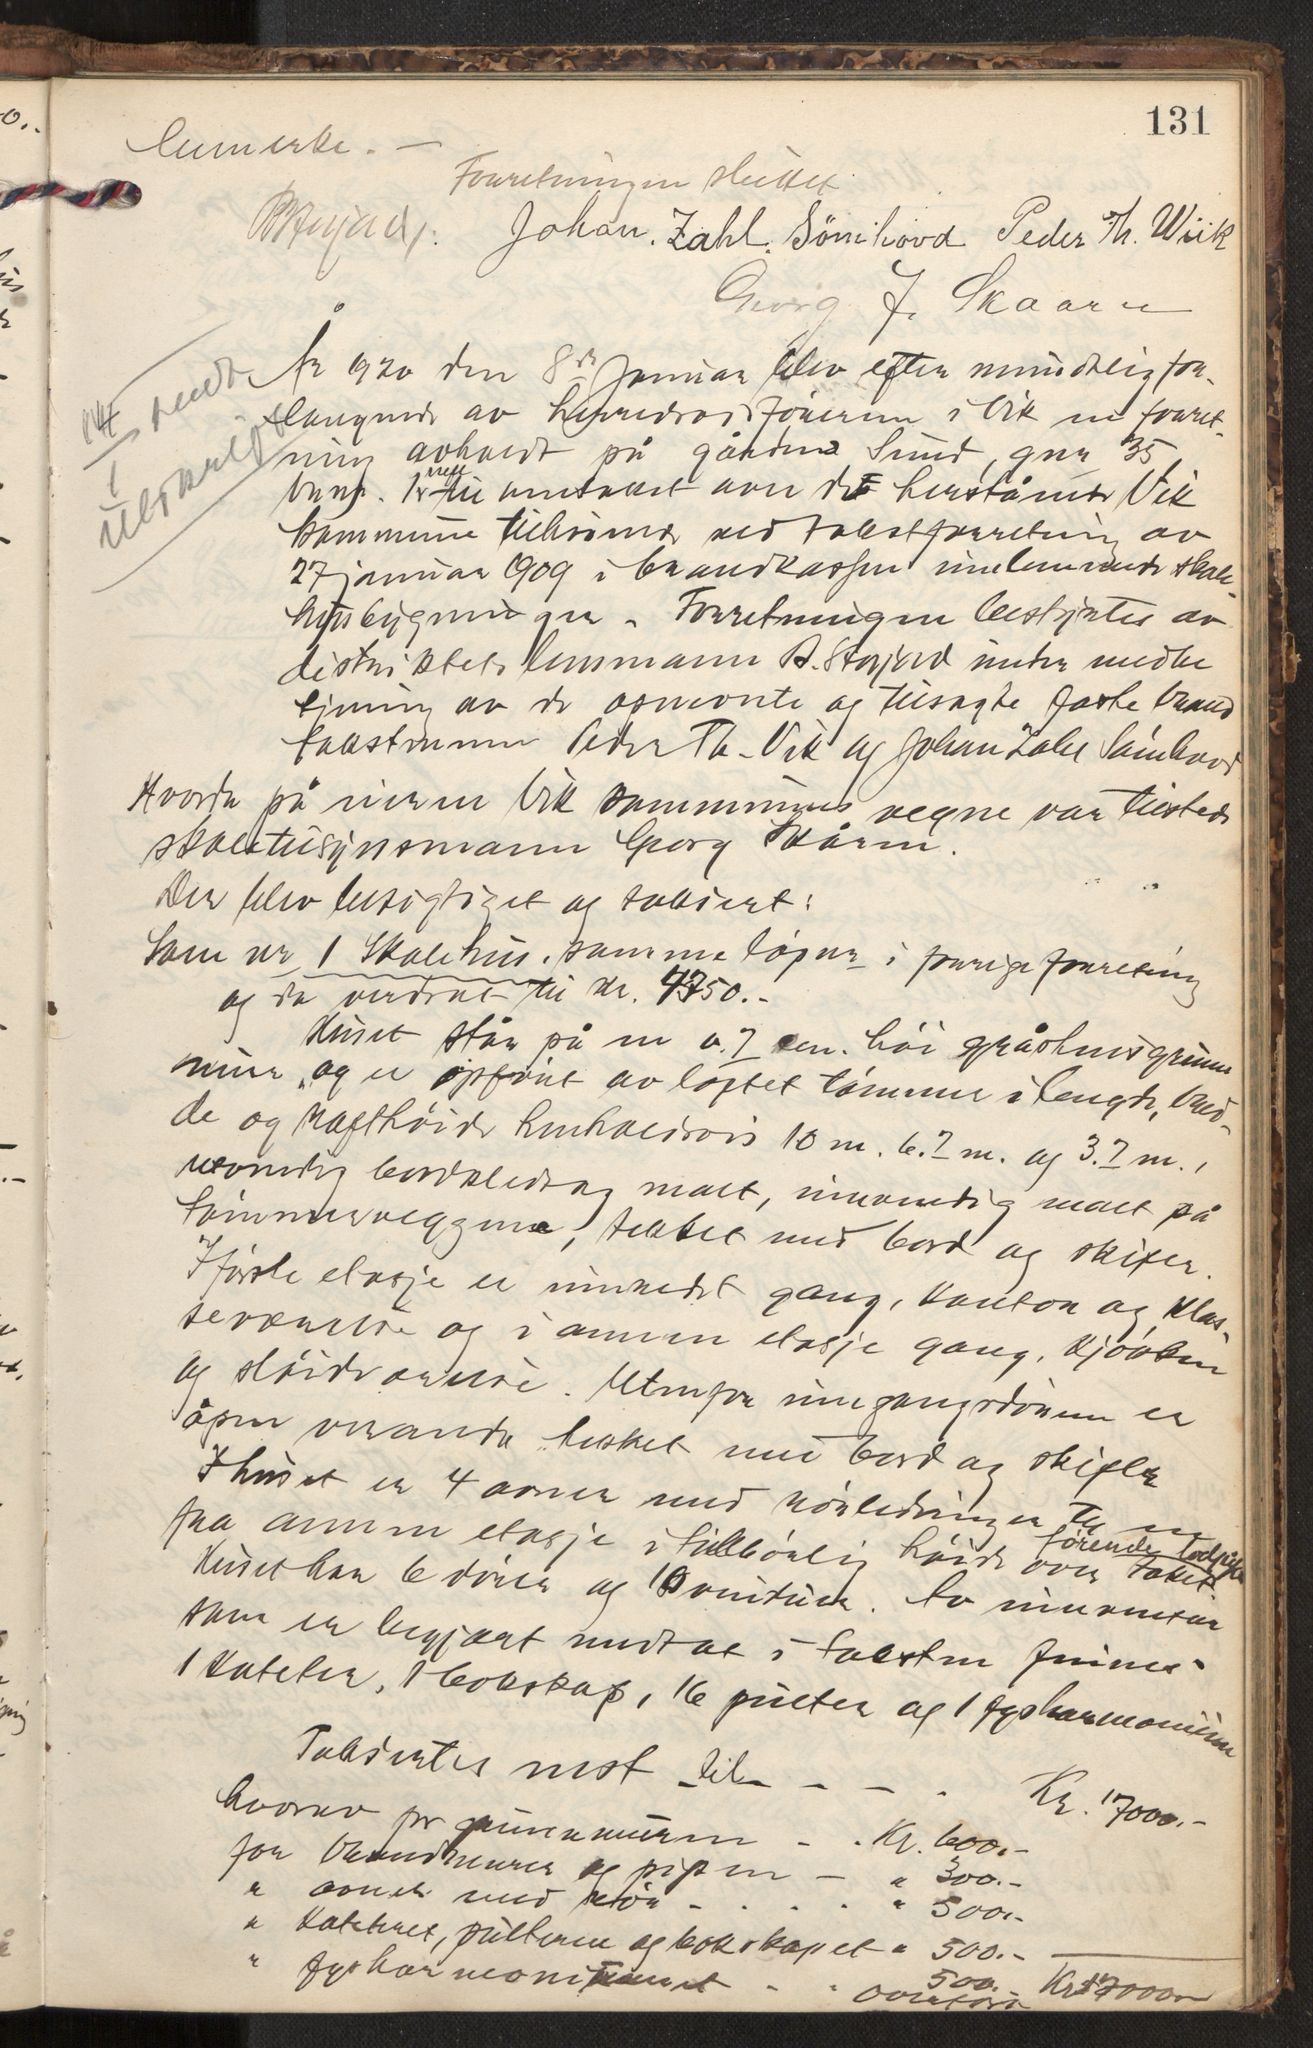 131
bemerke. —
Forretningen sluttet
Johan. Zahl. Sömhovd Peder Th. Wiik
Georg J. Skaaren
År 1920 den 8de Januar blev efter mundtlig for-
langende av herredsordföreren i Vik en forret-
ning avholdt på gården Sund, gnr 35
bnr. 1 til omtakst over det herstående Vik
kommune tilhörende ved takstforretning av
27 januar 1909 i brandkassen indlemmede skole-
husbygninger. Forretningen bestyrtes av
distriktets lensmann B. Storjord under medbe
tjening av de opnevnte og tilsagte faste brand
takstmenn Peder Th. Vik og Johan Zahl Sömhovd
Hvorda på eieren Vik kommunes vegne var tilstede
skoletilsynsmann Georg Skåren.
Der blev besigtiget og taksert:
Som nr 1 Skolehus. samme löpnr i forrige forretning
og da verdsat til kr. 4750.-
Huset står på en 0.7 cm. höi gråstensgrunn
mur og er opfört av loftet tömmer i lengde, bred-
de og rafthöide henholdsvis 10 m. 6.7 m. og 3.7 m.,
utvendig bordkledt og malt, innvendig malt på
tömmerveggene, tekket med bord og skifer.
I förste etasje er innredet gang, kontor og klas-
seværelse og i annen etasje gang, kjökken
og slöidværelse. Utenfor inngangsdören er
åpen veranda tekket med bord og skifer
I huset er 4 ovner med rörledninger til en
fra annen etasje i tilbörlig höide over taket
förende lodpipe
Huset har 6 dörer og 10 vinduer. Av inventar
som er begjært medtat i taksten finnes
1 kateter, 1 bokskap, 16 pulter og 1 fysharmonium
Taksertes nest til - - - . Kr. 17000.-
hvorav for grunnmuren - . Kr. 600.-
for brandmurer og pipen - " 300.-
" ovner med rör - . . . . " 500.-
" Kateteret, pulterne og bokskapet " 500.-
" fysharmoniumet - . 500.
overföres Kr 17000.-